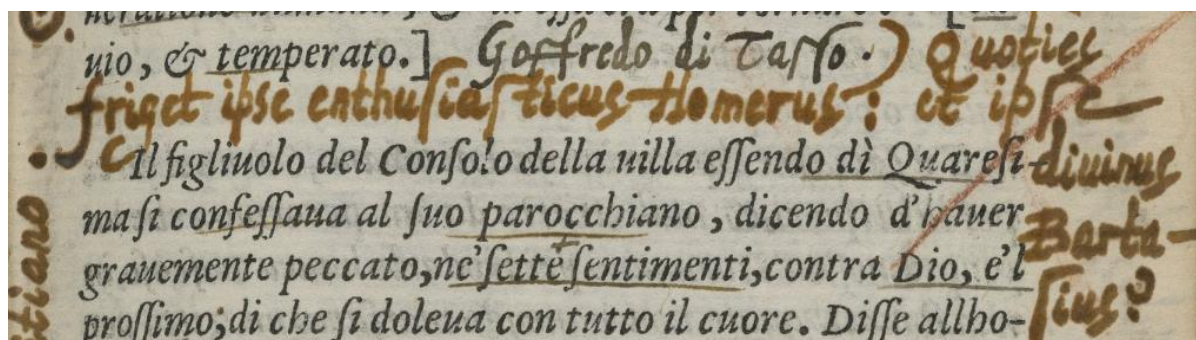 uio, & temperato.] Goffredo di Tasso. ) Quoties
friget ipse enthusiasticus Homerus: et ipse
Il figliuolo del Conſolo della uilla eſſendo dì Quareſi- diuinus
ma ſi confeſſaua al ſuo parocchiano, dicendo d'hauer Barta-
grauemente peccato, ne' ſette ſentimenti, contra Dio, e'l
proſſimo; di che ſi doleua con tutto il cuore. Diſſe allho- ſius?